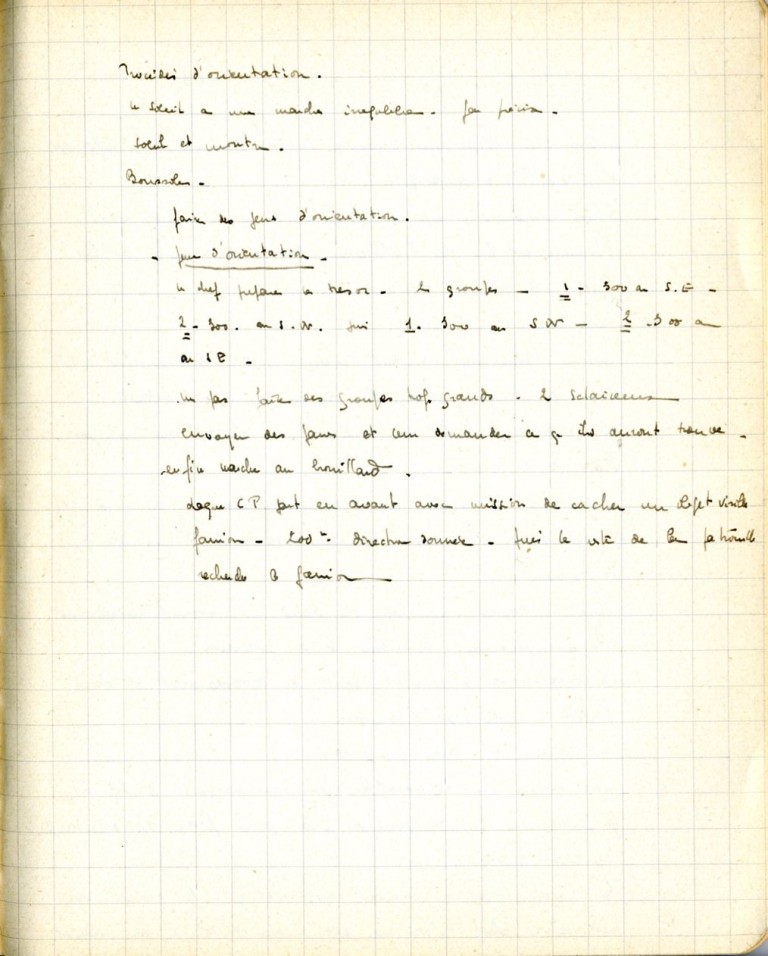 Procédés d'orientation.
le soleil a une marche irrégulière. peu précis.
soleil et montre.
Boussole.
faire des jeux d'orientation.
- jeu d'orientation -
le chef prépare le trésor - 2 groupes - 1 - 300 au S.E -
2 - 300. au S.W. puis 1. 300 au SW - 2 - 300 m
au SE -
ne pas faire des groupes trop grands. 2 éclaireurs
envoyer des et leur demander ce q ils auront trouvé.
enfin marche au brouillard.
chaque CP part en avant avec mission de cacher un objet visible
fanion - 200 m. direction donnée - puis le reste de la patrouille
recherche le fanion